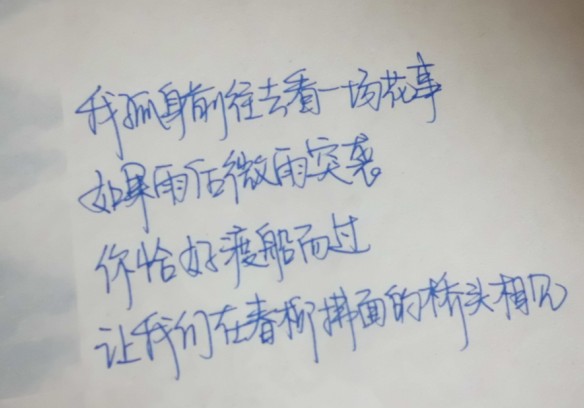 我孤身前往去看一场花事
如果雨后微雨突袭
你恰好渡船而过
让我们在春柳拂面的桥头相见